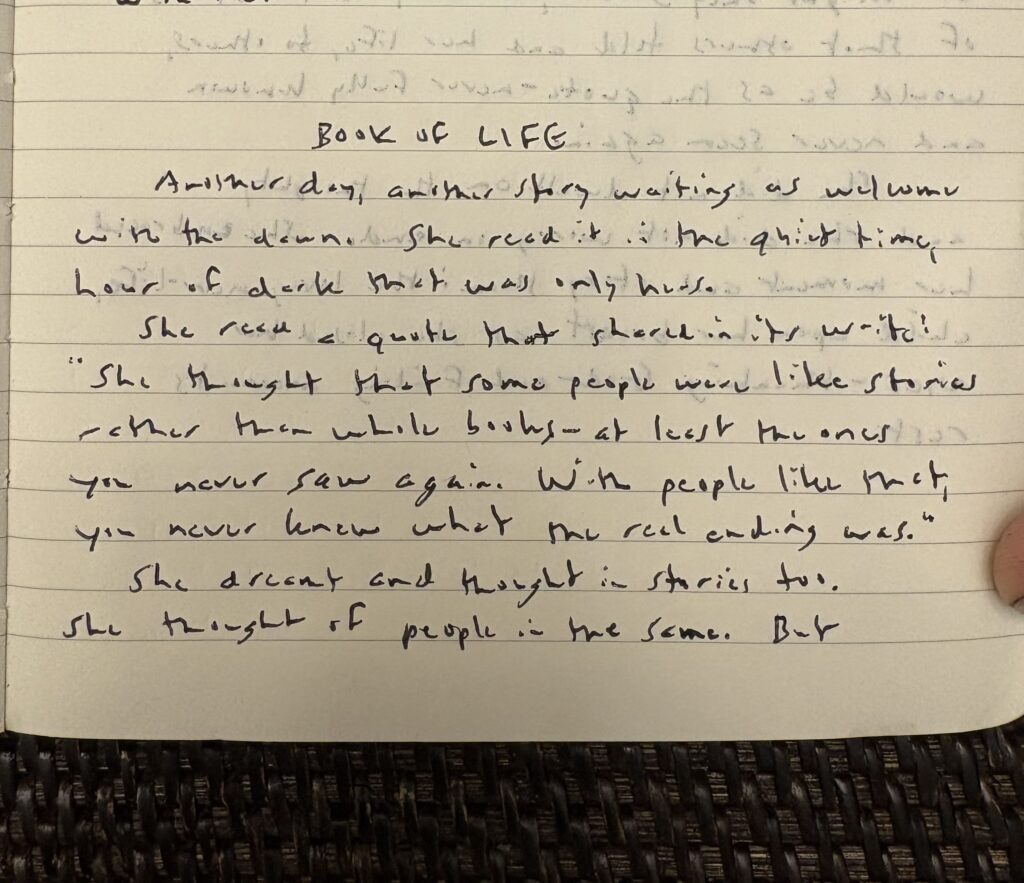 BOOK OF LIFE
Another day, another story waiting as welcome
with the dawn. She read it in the quiet time,
hour of dark that was only hers.
She read a quote that shared in its write:
"She thought that some people were like stories
rather than whole books – at least the ones
you never saw again. With people like that,
you never knew what the real ending was."
She dreamt and thought in stories too.
She thought of people in the same. But